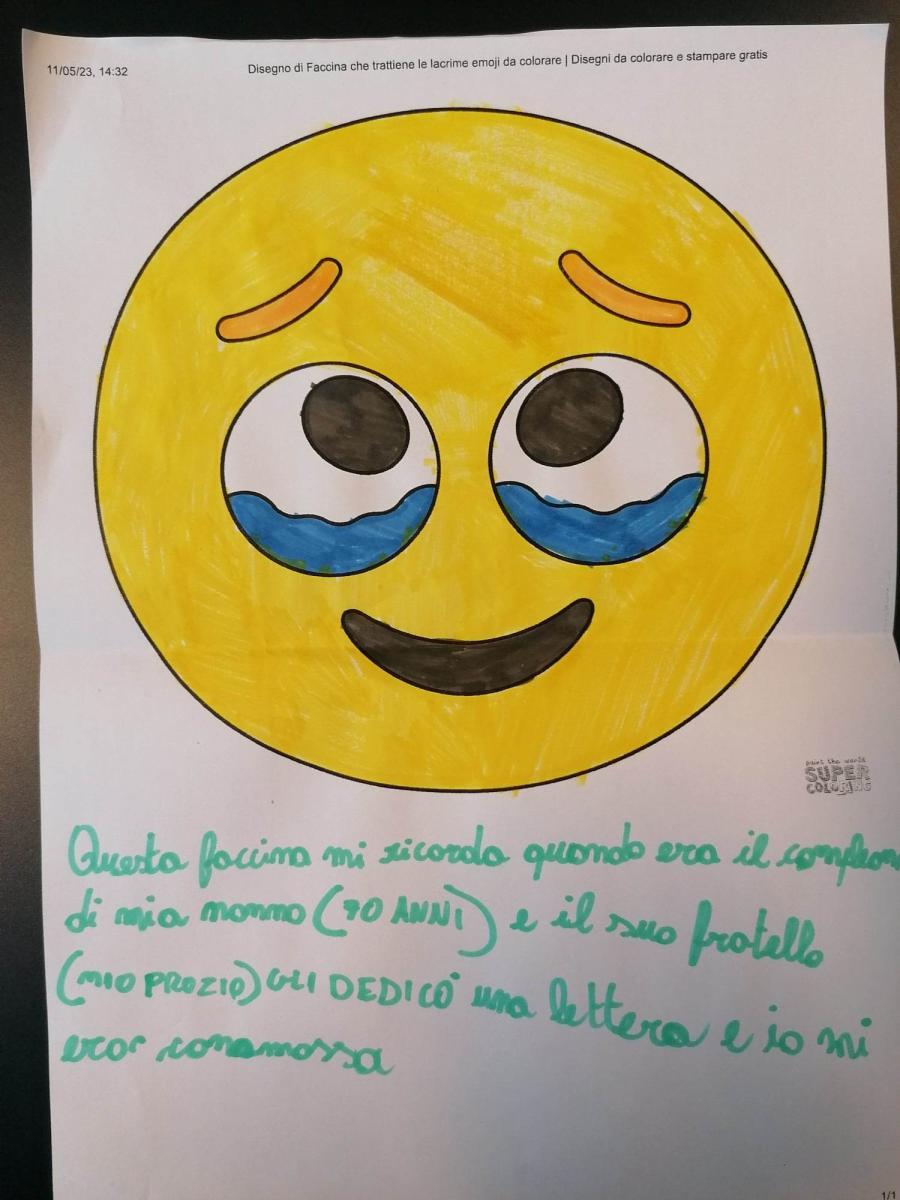 11/05/23, 14:32
Disegno di Faccina che trattiene le lacrime emoji da colorare | Disegni da colorare e stampare gratis
paint the world
SUPER
COLORING
Questa faccina mi ricorda quando era il complean
di mia nonna (70 ANNI) e il suo fratello
(MIO PROZIO) GLI DEDICÒ una lettera e io mi
ero commossa
1/1